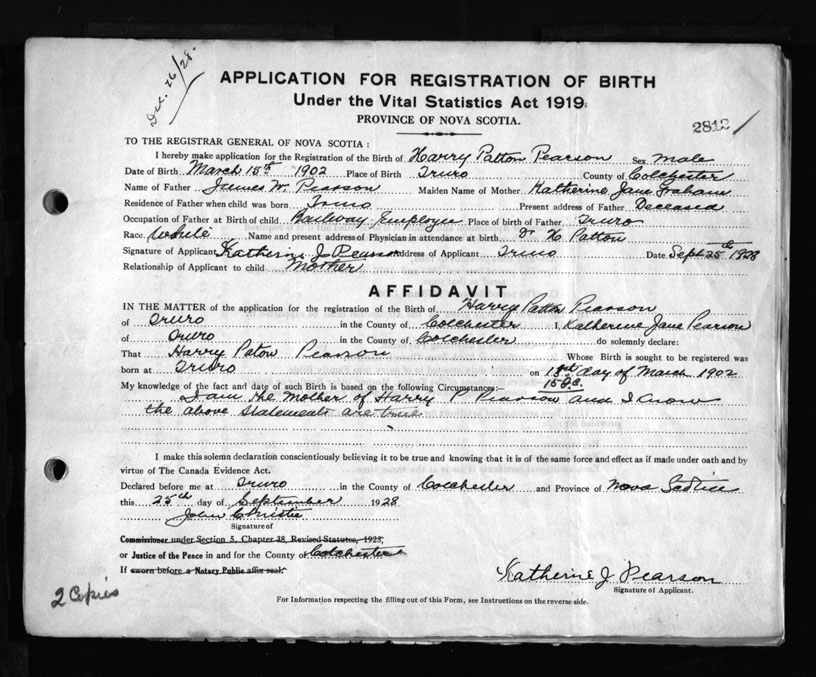 Dec. 26/28.
APPLICATION FOR REGISTRATION OF BIRTH
Under the Vital Statistics Act 1919.
PROVINCE OF NOVA SCOTIA.
2812 /
TO THE REGISTRAR GENERAL OF NOVA SCOTIA :
I hereby make application for the Registration of the Birth of Harry Patton Pearson Sex Male
Date of Birth March 15th 1902 Place of Birth Truro County of Colchester
Name of Father James W. Pearson Maiden Name of Mother Katherine Jane Graham
Residence of Father when child was born Truro Present address of Father Deceased
Occupation of Father at Birth of child Railway Employee Place of birth of Father Truro
Race White Name and present address of Physician in attendance at birth Dr H Patton
Signature of Applicant Katherine J Pearson Address of Applicant Truro Date Sept 25th 1928
Relationship of Applicant to child Mother
AFFIDAVIT
IN THE MATTER of the application for the registration of the Birth of Harry Patton Pearson
of Truro in the County of Colchester I, Katherine Jane Pearson
of Truro in the County of Colchester do solemnly declare:
That Harry Paton Pearson Whose Birth is sought to be registered was
born at Truro on day of March 1902
My knowledge of the fact and date of such Birth is based on the following Circumstances:— 15
I am the Mother of Harry P Pearson and I know
the above statements are true
I make this solemn declaration conscientiously believing it to be true and knowing that it is of the same force and effect as if made under oath and by
virtue of The Canada Evidence Act.
Declared before me at Truro in the County of Colchester and Province of Nova Scotia
this 25th day of September 1928
John Christie
Signature of
Commissioner under Section 5, Chapter 38, Revised Statutes, 1923,
or Justice of the Peace in and for the County of Colchester
If sworn before a Notary Public affix seal.
Katherine J Pearson
Signature of Applicant.
2 Copies
For Information respecting the filling out of this Form, see Instructions on the reverse side.